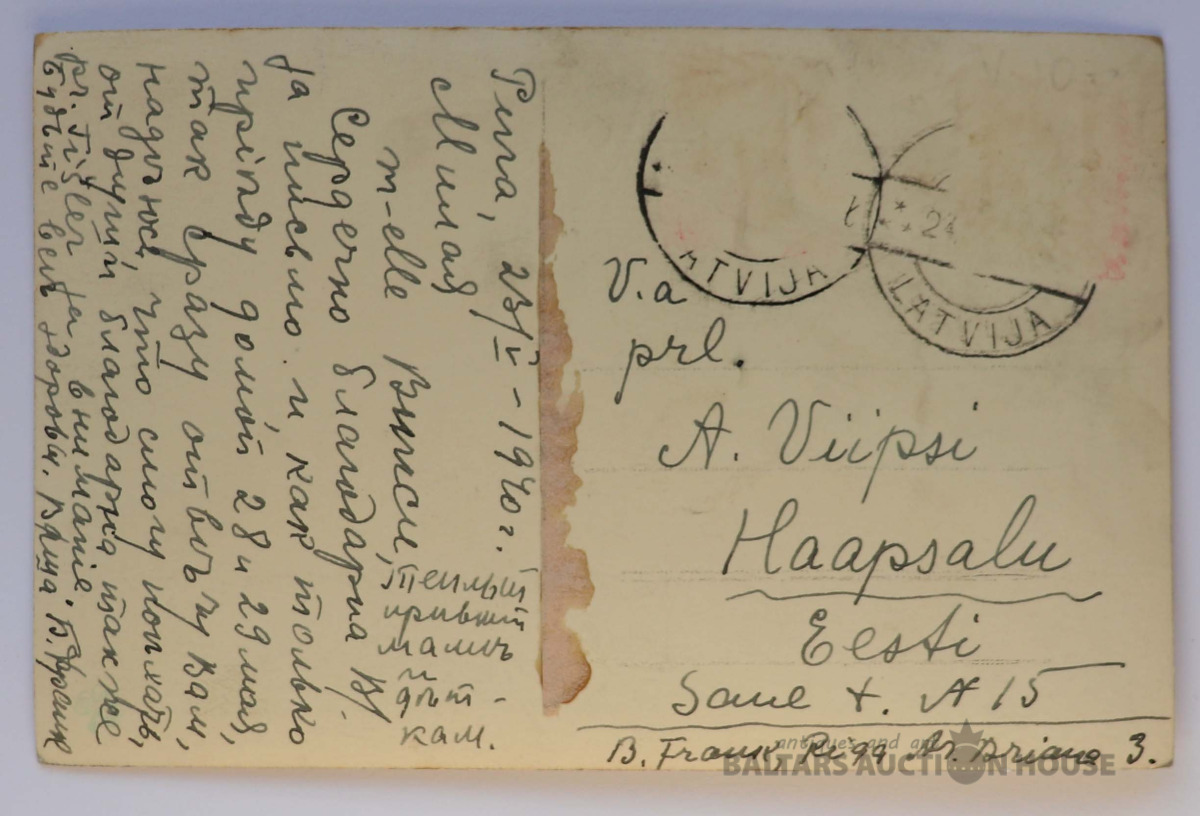 Рига, 23/V – 1940 г.
Милая
m-elle Виипси,
Сердечно благодарна Вам
за письмо. и как только
пріѣду домой, 28 и 29 мая,
так сразу отвѣчу Вам,
надѣюсь, что смогу
от души благодарна также
pr. за вниманіе.
Будьте все здоровы. Ваша В. Франк
теплый
привѣт
мамѣ
и
дѣт-
кам.
LATVIJA
24
LATVIJA
V.a
prl.
A. Viipsi
Haapsalu
Eesti
Saue t. № 15
B. Frank, Riga, Ar. Briana 3.
antiques and art
BALTARS AUCTION HOUSE